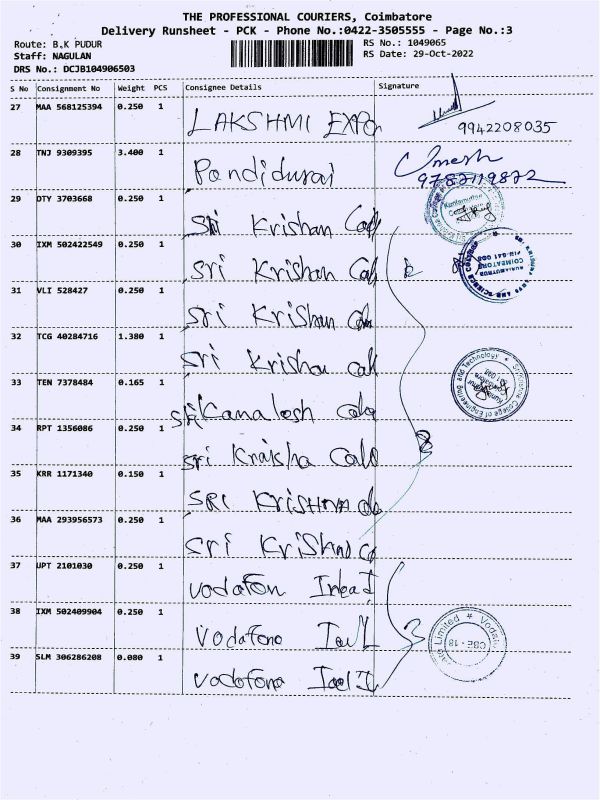 THE PROFESSIONAL COURIERS, Coimbatore
Delivery Runsheet - PCK - Phone No.:0422-3505555 - Page No.:3
Route: B.K PUDUR
RS No.: 1049065
Staff: NAGULAN
RS Date: 29-Oct-2022
DRS No.: DCJB104906503
S No Consignment No Weight PCS Consignee Details Signature
27 MAA 568125394 0.250 1 LAKSHMI EXPO
9942208035
28 TNJ 9309395 3.400 1 Pandidurai Umesh
29 DTY 3703668 0.250 1 Sri Krishan
30 IXM 502422549 0.250 1 Sri Krishan
31 VLI 528427 0.250 1 Sri Krishan
32 TCG 40284716 1.380 1 Sri Krishan
33 TEN 7378484 0.165 1 Sri
34 RPT 1356086 0.250 1 Sri Kraisha
35 KRR 1171340 0.150 1 SRI KRISHNA
36 MAA 293956573 0.250 1 Sri
37 UPT 2101030 0.250 1 Vodafon
38 IXM 502409904 0.250 1 Vodafona
39 SLM 306286208 0.080 1 Vodafona
College of Engineering and Technology
Limited * Vodafo
CBE - 18